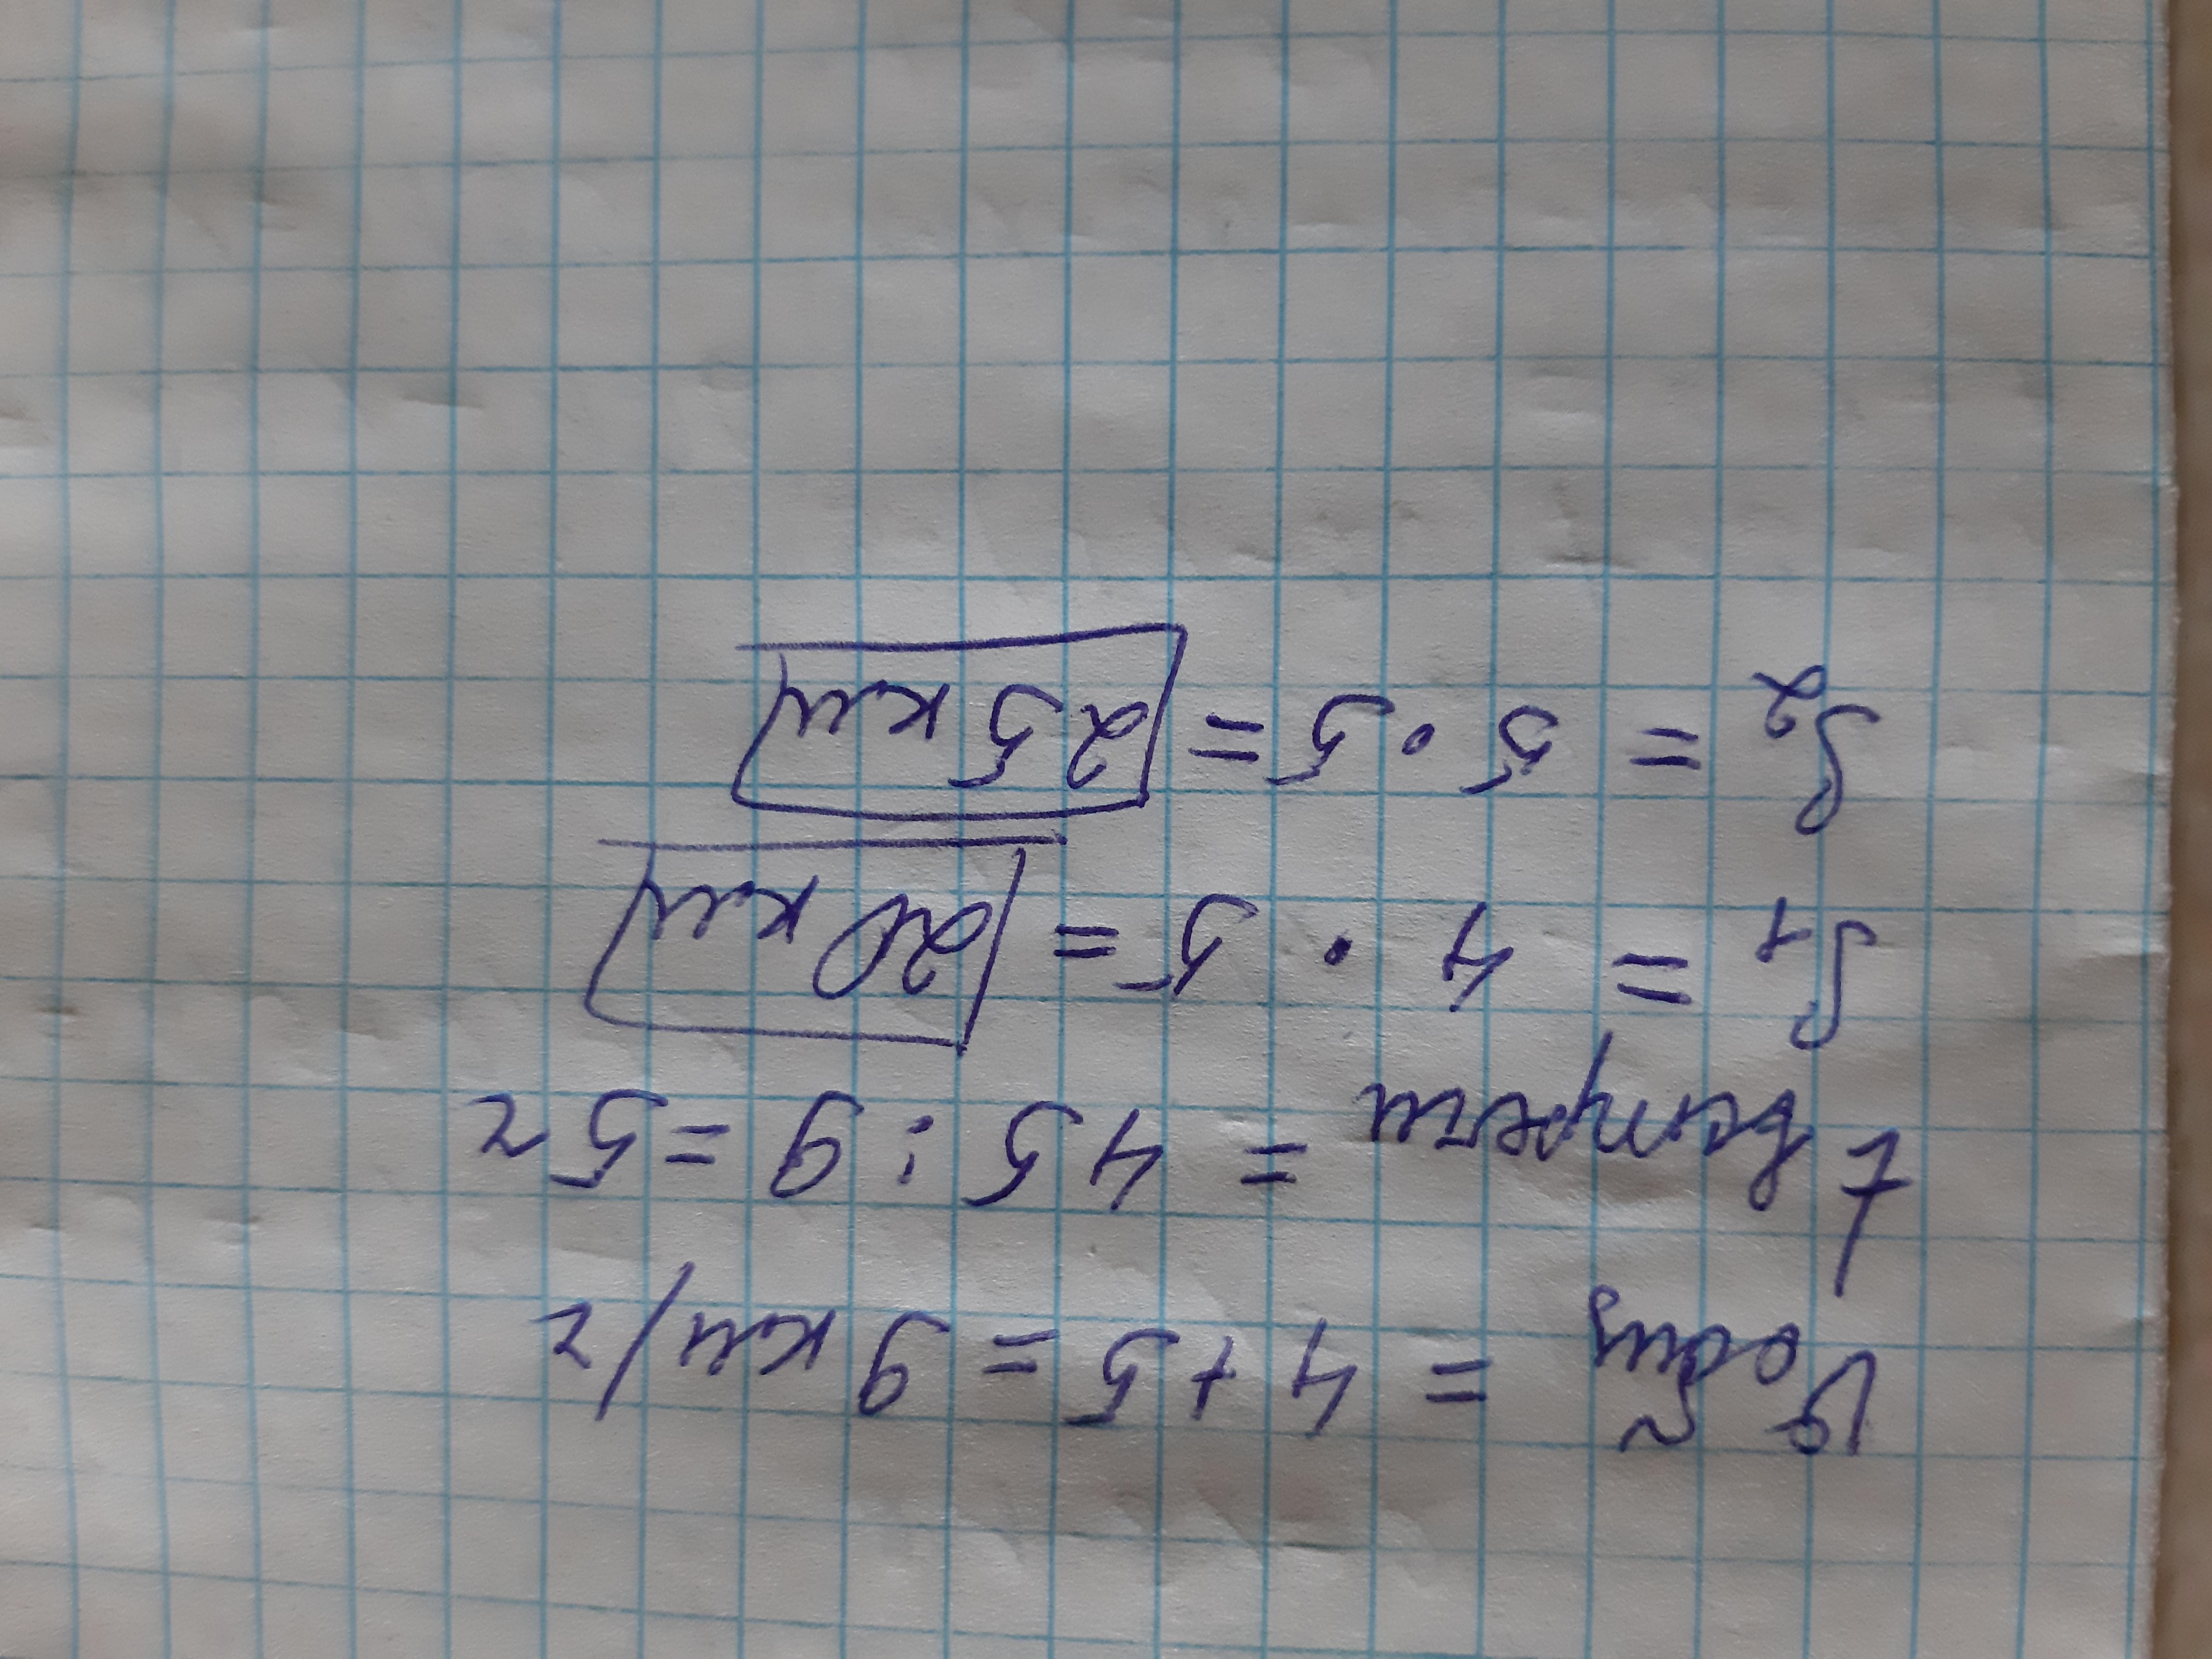 V общ = 4 + 5 = 9 км/ч
t встречи = 45 : 9 = 5 ч
S1 = 4 · 5 = 20 км
S2 = 5 · 5 = 25 км